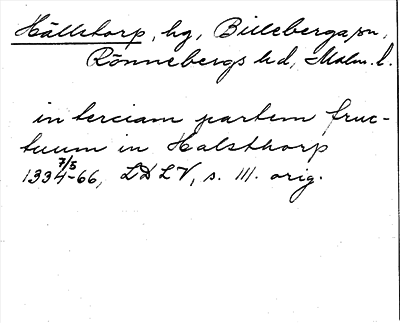 Hällstorp, hg, Billeberga sn,
Rönnebergs hd, Malm. l.
in terciam partem fruc-
tuum in Halsthorp
7/5
1334-66, LDLV, s. 111. orig.